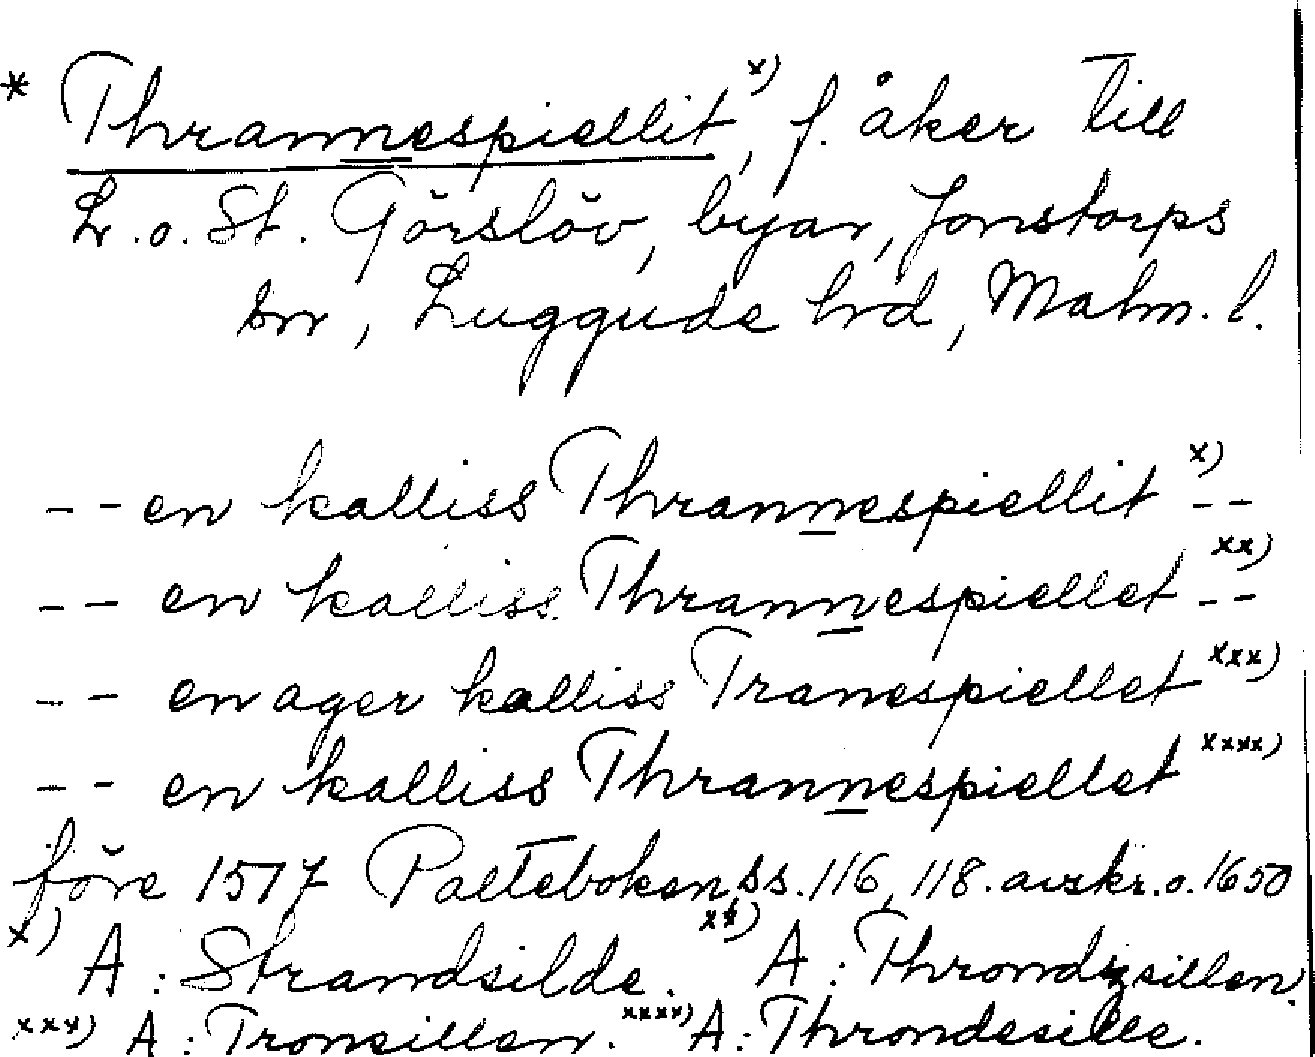 * Thrannespiellit x), f. åker till
L. o. St. Görslöv, byar, Jonstorps
sn, Luggude hrd, Malm. l.
-- en kalliss Thrannespiellit x) --
-- en kalliss Thrannespiellet xx) --
-- en ager kalliss Tranespiellet xxx)
-- en kalliss Thrannespiellet xxxx)
före 1517 Palteboken, ss. 116, 118. avskr. o. 1650
x) A: Strandsilde. xx) A: Throndzsillen.
xxx) A: Tronsillen. xxxx) A: Throndesille.